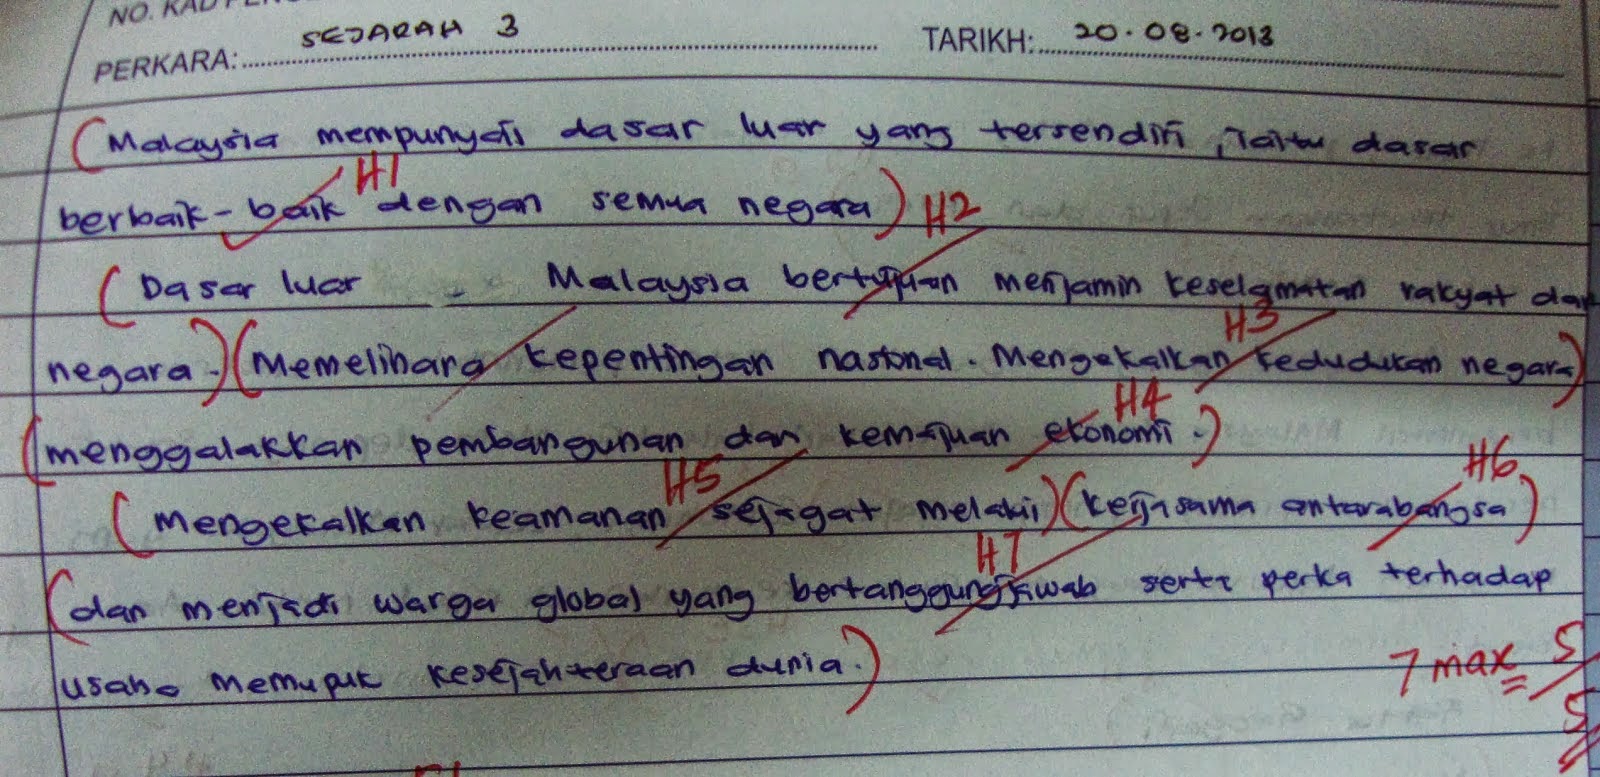 NO. KAD PENG
PERKARA: SEJARAH 3 TARIKH: 20.08.2013
(Malaysia mempunyai dasar luar yang tersendiri, Iaitu dasar
berbaik-baik dengan semua negara) H1
(Dasar luar - Malaysia bertujuan menjamin keselamatan rakyat dan H2
negara.) (Memelihara kepentingan nasional. Mengekalkan kedudukan negara) H3
(menggalakkan pembangunan dan kemajuan ekonomi.) H4
(Mengekalkan keamanan sejagat melalui) H5 (kerjasama antarabangsa) H6
(dan menjadi warga global yang bertanggungjawab serta perka terhadap H7
usaha memupuk kesejahteraan dunia.)
7 max 5/5